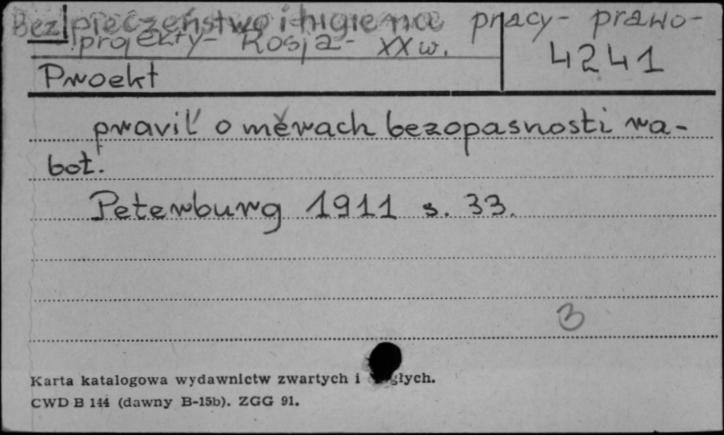 Bezpieczeństwo i higiena pracy - prawo -
projekty - Rosja - XX w.
4241
Proekt
pravil' o měrach bezopasnosti ra-
bot.
Peterburg 1911 s. 33.
3
Karta katalogowa wydawnictw zwartych i
CWD B 144 (dawny B-15b). ZGG 91.